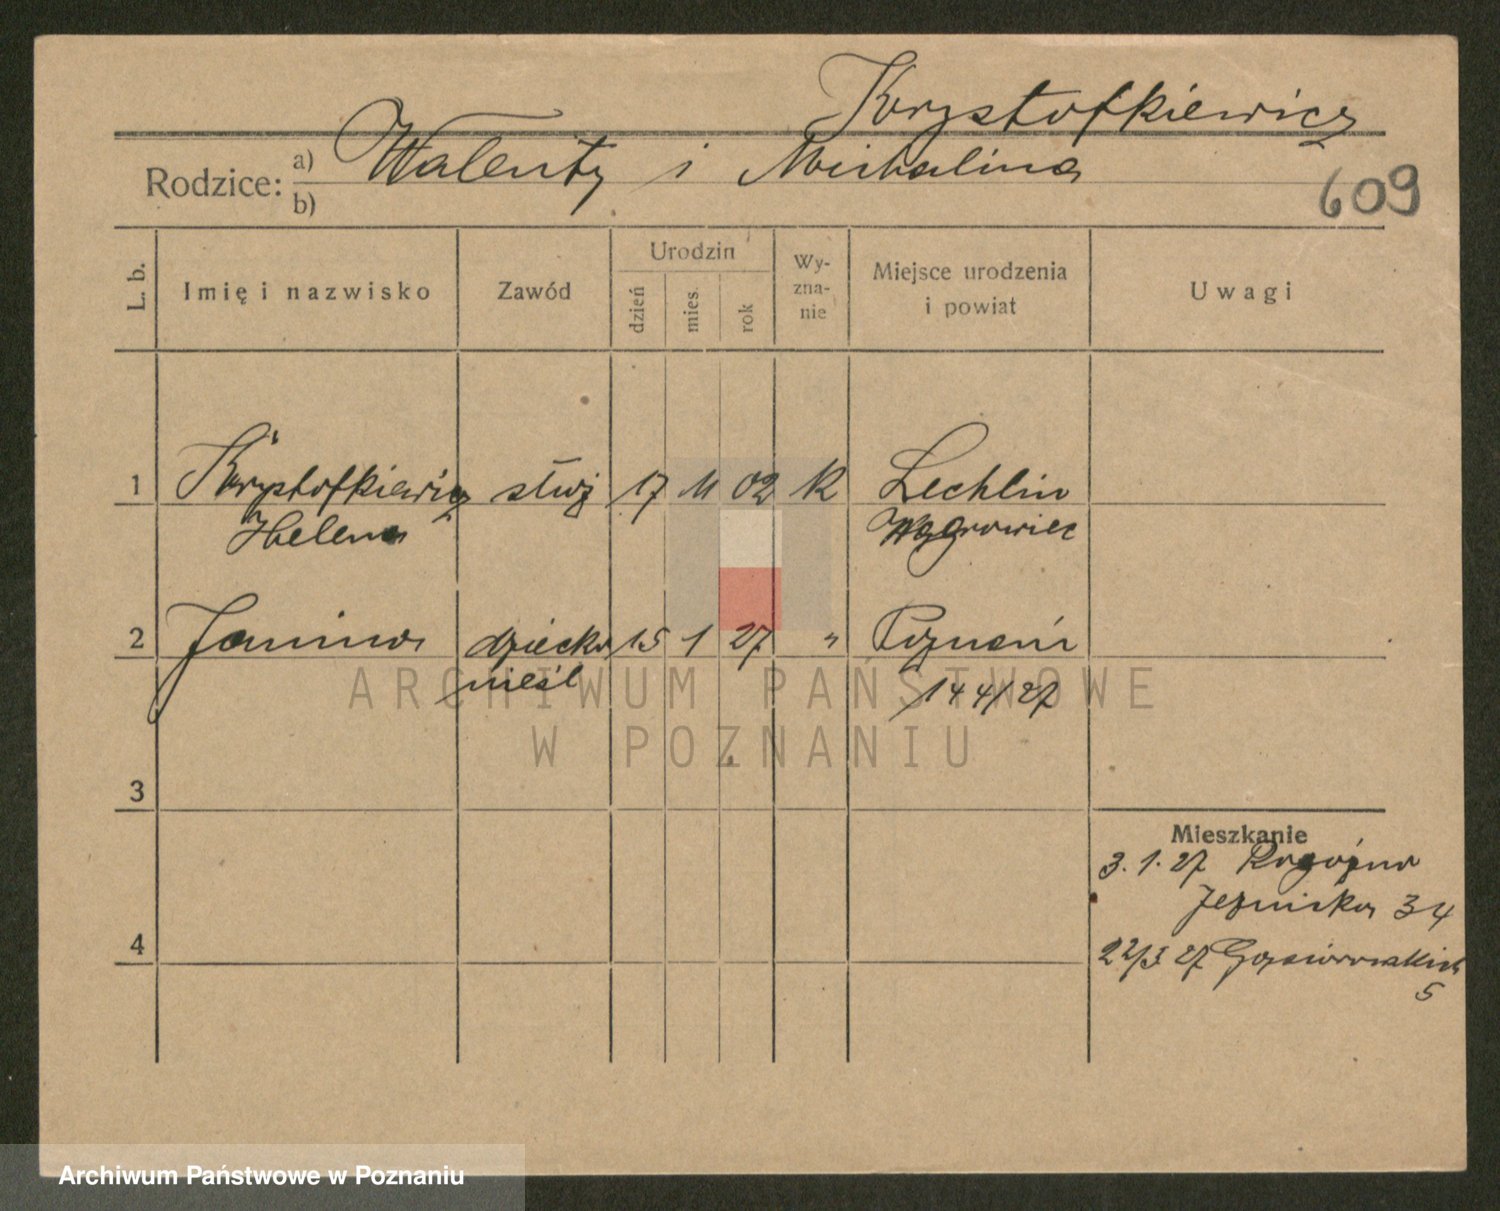 Krzystofkiewicz
Rodzice: a) Walenty i Michalina
b)
609
L. b.
Imię i nazwisko
Zawód
Urodzin
dzień
mies.
rok
Wy-
zna-
nie
Miejsce urodzenia
i powiat
Uwagi
1 Krzystofkiewicz służ 17 11 02 k Lechlin
Helena Wągrowiec
2 Janina dziecko 15 1 27 " Poznań
nieśl 144/27
ARCHIWUM PAŃSTWOWE
W POZNANIU
3
Mieszkanie
3.1.27 Rogoźno
34
4
22/3 27 Gąsiorowskich
5
Archiwum Państwowe w Poznaniu